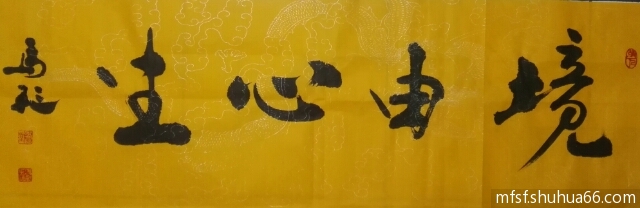 境由心生
馬
mfsf.shuhua66.com